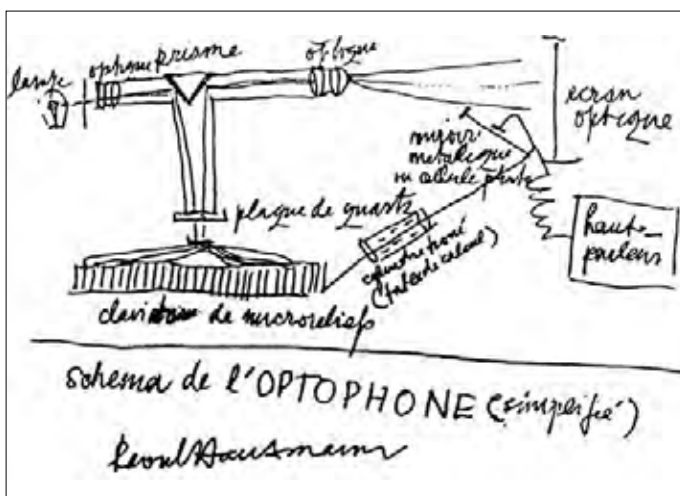 lampe
optique
prisme
optique
ecran
optique
miroir
metalique
ou cellule photo
plaque de quartz
cylindre troué
(table de calcul)
haut-
parleur
clavi de microreliefs
schema de l'OPTOPHONE (simplifié)
Raoul Hausmann